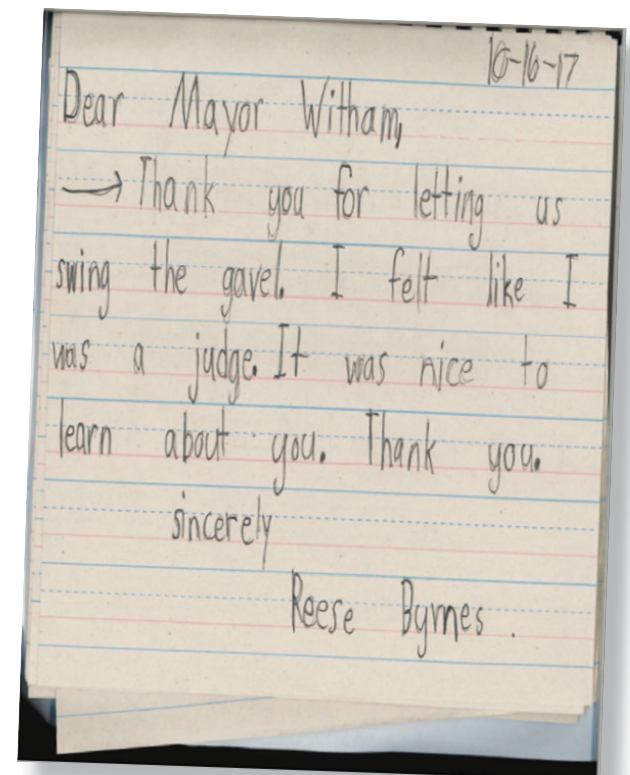 10-16-17
Dear Mayor Witham,
→ Thank you for letting us
swing the gavel. I felt like I
was a judge. It was nice to
learn about you. Thank you.
sincerely
Reese Byrnes.